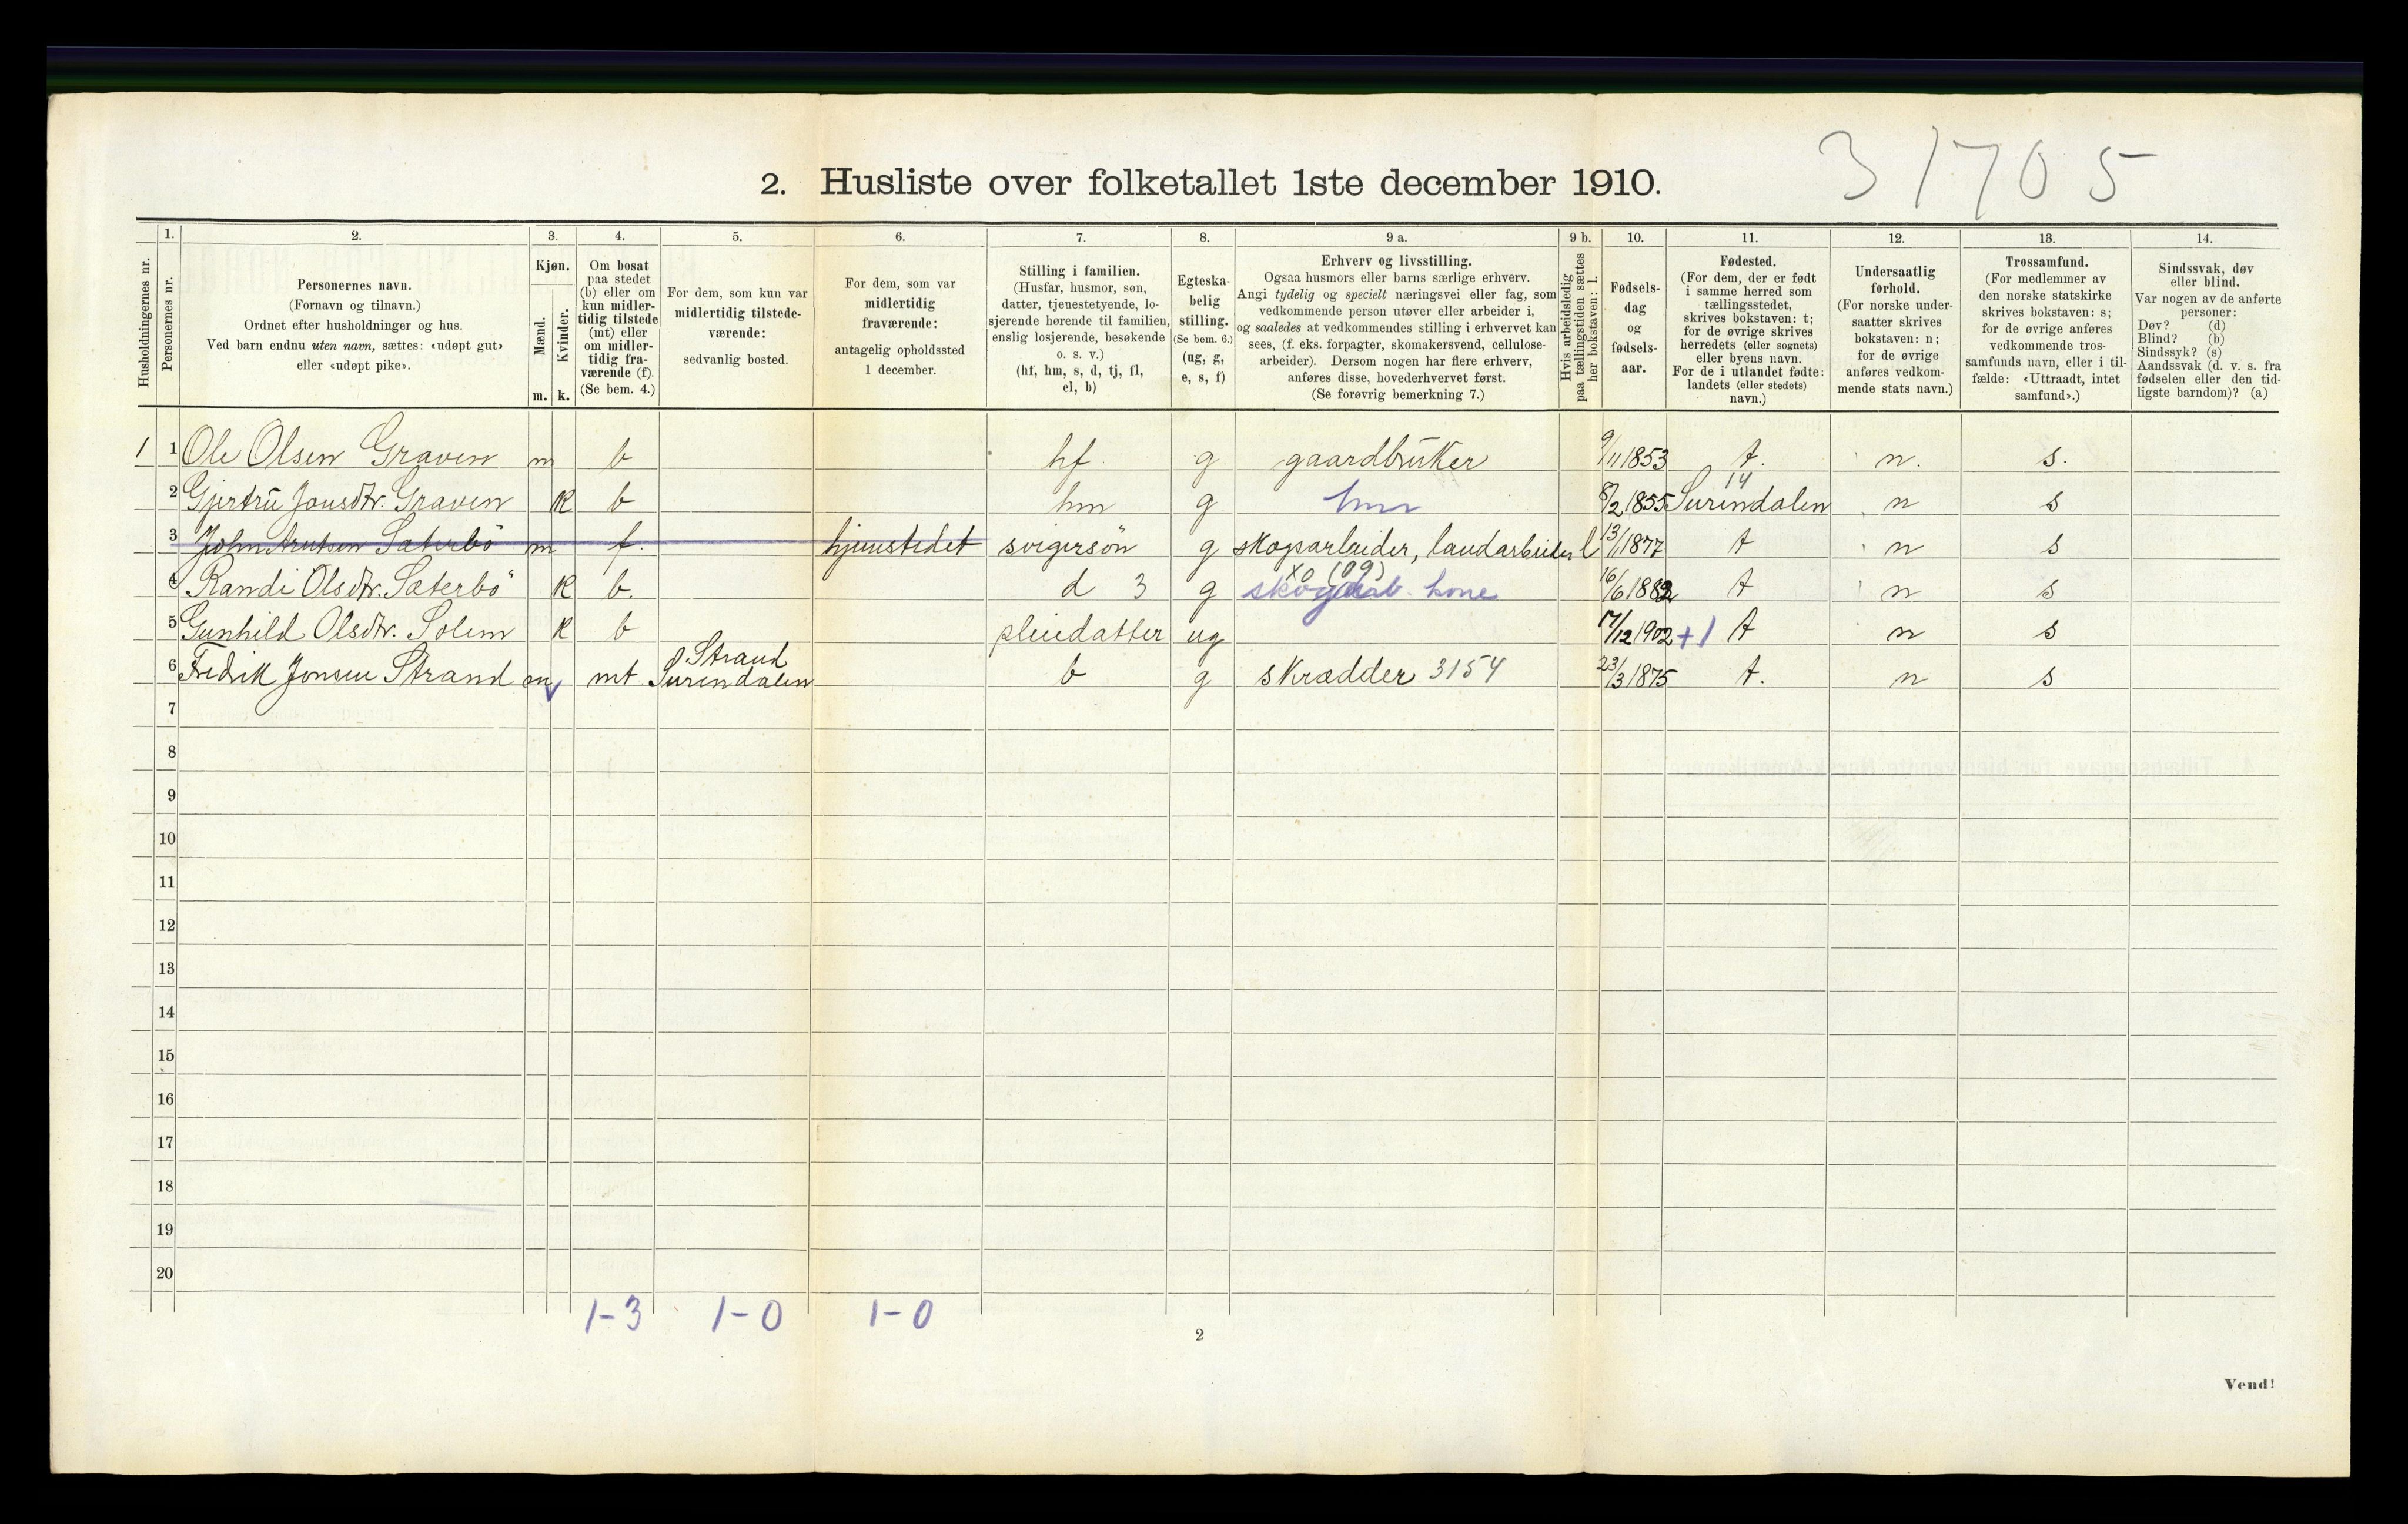 31705
2. Husliste over folketallet 1ste december 1910.
Husholdningernes nr.
1.
Personernes nr.
2.
Personernes navn.
(Fornavn og tilnavn.)
Ordnet efter husholdninger og hus.
Ved barn endnu uten navn, sættes: «udøpt gut»
eller «udøpt pike».
3.
Kjøn.
Mænd.
Kvinder.
m. k.
4.
Om bosat
paa stedet
(b) eller om
kun midler-
tidig tilstede
(mt) eller
om midler-
tidig fra-
værende (f).
(Se bem. 4.)
5.
For dem, som kun var
midlertidig tilstede-
værende:
sedvanlig bosted.
6.
For dem, som var
midlertidig
fraværende:
antagelig opholdssted
1 december.
7.
Stilling i familien.
(Husfar, husmor, søn,
datter, tjenestetyende, lo-
sjerende hørende til familien,
enslig losjerende, besøkende
o. s. v.)
(hf, hm, s, d, tj, fl,
el, b)
8.
Egteska-
belig
stilling.
(Se bem. 6.)
(ug, g,
e, s, f)
9 a.
Erhverv og livsstilling.
Ogsaa husmors eller barns særlige erhverv.
Angi tydelig og specielt næringsvei eller fag, som
vedkommende person utøver eller arbeider i,
og saaledes at vedkommendes stilling i erhvervet kan
sees, (f. eks. forpagter, skomakersvend, cellulose-
arbeider). Dersom nogen har flere erhverv,
anføres disse, hovederhvervet først.
(Se forøvrig bemerkning 7.)
9 b.
Hvis arbeidsledig
paa tællingstiden sættes
her bokstaven: l.
10.
Fødsels-
dag
og
fødsels-
aar.
11.
Fødested.
(For dem, der er født
i samme herred som
tællingsstedet,
skrives bokstaven: t;
for de øvrige skrives
herredets (eller sognets)
eller byens navn.
For de i utlandet fødte:
landets (eller stedets)
navn.)
12.
Undersaatlig
forhold.
(For norske under-
saatter skrives
bokstaven: n;
for de øvrige
anføres vedkom-
mende stats navn.)
13.
Trossamfund.
(For medlemmer av
den norske statskirke
skrives bokstaven: s;
for de øvrige anføres
vedkommende tros-
samfunds navn, eller i til-
fælde: «Uttraadt, intet
samfund».)
14.
Sindssvak, døv
eller blind.
Var nogen av de anførte
personer:
Døv? (d)
Blind? (b)
Sindssyk? (s)
Aandssvak (d. v. s. fra
fødselen eller den tid-
ligste barndom)? (a)
1 1 Ole Olsen Graven m b hf. g gaardbruker 9/11 1853 t. n. s.
14
2 Gjertru Jonsdtr. Graven k b hm g hm 8/2 1855 Surendalen n s
3 John Sæterbö m f. hjemstedet svigersön g skogsarbeider, landarbeider l 13/1 1877 t n s
X0 (09)
4 Randi Olsdtr. Sæterbö k b. d 3 g skogarb. kone 16/6 1882 t n s
5 Gunhild Olsdtr. Solem k b pleiedatter ug 17/12 1902 +1 t n s
Strand
6 Fredrik Jonsen Strand m v mt Surendalen b g skrædder 3154 23/3 1875 t. n s
7
8
9
10
11
12
13
14
15
16
17
18
19
20
1-3 1-0 1-0
2
Vend!